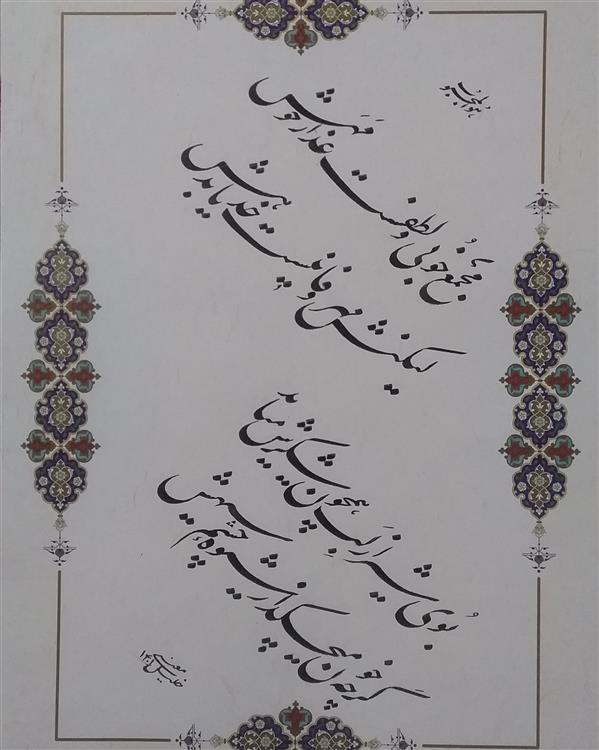 هوالمحبوب
مجمع خوبی و لطفست عذار چو مهش
لیکنش مهر و وفا نیست خدایا بدهش
بوی شیر از لب همچون شکرش میآید
گرچه خون میچکد از شیوه چشم سیهش